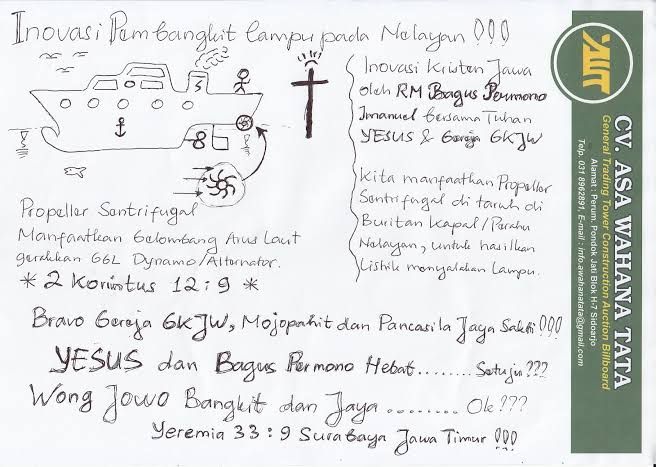 Inovasi Pembangkit lampu pada Nelayan !!!
Inovasi Kristen Jawa
oleh RM Bagus Permono
Imanuel bersama Tuhan
YESUS & Gereja GKJW
Kita manfaatkan Propeller
Sentrifugal di taruh di
Buritan Kapal/Perahu
Nelayan, untuk hasilkan
Listrik menyalakan Lampu.
Propeller Sentrifugal
Manfaatkan Gelombang Arus Laut
gerakkan GGL Dynamo/Alternator.
* 2 Korintus 12:9 *
Bravo Gereja GKJW, Mojopahit dan Pancasila Jaya Sakti !!!
YESUS dan Bagus Permono Hebat........ Setuju???
Wong Jowo Bangkit dan Jaya ........ Ok???
Yeremia 33:9 Surabaya Jawa Timur !!!
CV. ASA WAHANA TATA
General Trading Tower Construction Auction Billboard
Alamat : Perum. Pondok Jati Blok H-7 Sidoarjo
Telp. 031 8962891, E-mail : info.awahanatata@gmail.com